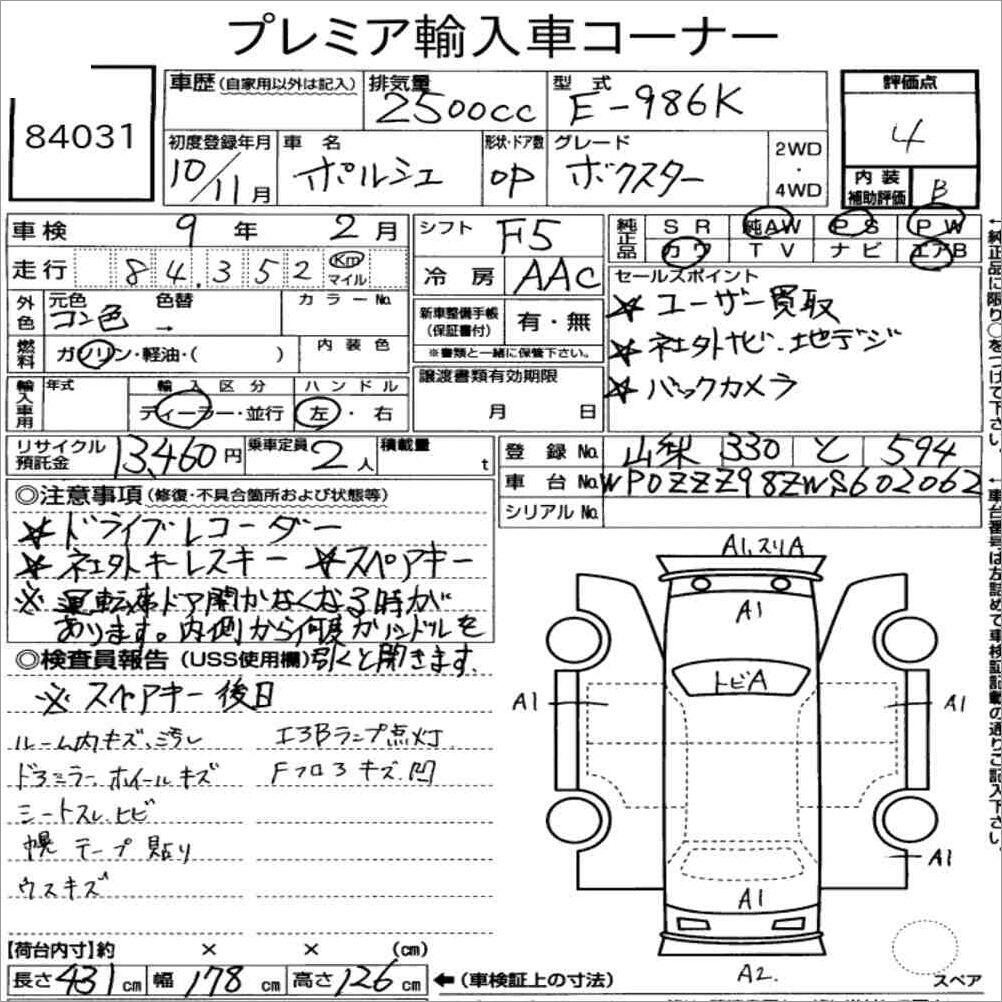 プレミア輸入車コーナー
84031
車歴(自家用以外は記入) 排気量 2500cc 型式 E-986K
評価点 4
初度登録年月 10/11月 車名 ポルシェ 形状・ドア数 OP グレード ボクスター 2WD・4WD
内装補助評価 B
車検 9年 2月
シフト F5
純正品 SR 純AW PS PW
カワ TV ナビ エアB
走行 84,352 Km マイル
冷房 AAC
セールスポイント
☆ユーザー買取
☆社外ナビ.地デジ
☆バックカメラ
外色 元色 コン色 色替 → カラーNo.
新車整備手帳(保証書付) 有・無
※書類と一緒に保管下さい。
燃料 ガソリン・軽油・( ) 内装色
輸入車用 年式 輸入区分 ディーラー・並行 ハンドル 左・右
譲渡書類有効期限
月 日
リサイクル預託金 13,460円 乗車定員 2人 積載量 t
登録No. 山梨 330 と 594
車台No. WP0ZZZ98ZWS602062
シリアルNo.
◎注意事項(修復・不具合箇所および状態等)
☆ドライブレコーダー
☆社外キーレスキー ☆スペアキー
※運転席ドア開かなくなる時が
あります。内側から何度かハンドルを
引くと開きます.
◎検査員報告(USS使用欄)
※スペアキー後日
ルーム内キズ、汚レ エアBランプ点灯.
ドアミラー、ホイールキズ Fフロアキズ.凹
シートスレ、ヒビ
幌 テープ貼り
ウスキズ
A1,スリA
A1
トビA
A1 A1
A1
A1
A2
スペア
【荷台内寸】約 × × (cm)
長さ 431cm 幅 178cm 高さ 126cm ←(車検証上の寸法)
←純正品に限り○をつけて下さい。
←車台番号は左詰めで車検証記載の通りご記入下さい。